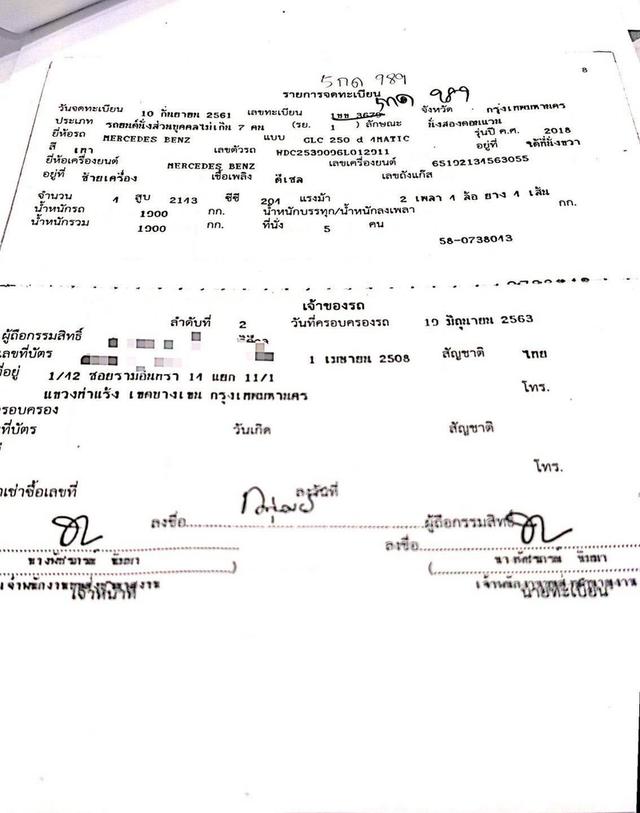 8
5กด 989
รายการจดทะเบียน
5กด 989
วันจดทะเบียน 10 กันยายน 2561 เลขทะเบียน จังหวัด กรุงเทพมหานคร
ประเภท รถยนต์นั่งส่วนบุคคลไม่เกิน 7 คน (รย. 1 ) ลักษณะ นั่งสองตอนแวน
ยี่ห้อรถ MERCEDES BENZ แบบ GLC 250 d 4MATIC รุ่นปี ค.ศ. 2018
สี เทา เลขตัวรถ WDC2539096L012911 อยู่ที่ ใต้ที่นั่งขวา
ยี่ห้อเครื่องยนต์ MERCEDES BENZ เลขเครื่องยนต์ 65192134563055
อยู่ที่ ซ้ายเครื่อง เชื้อเพลิง ดีเซล เลขถังแก๊ส
จำนวน 4 สูบ 2143 ซีซี 204 แรงม้า 2 เพลา 4 ล้อ ยาง 4 เส้น
น้ำหนักรถ 1900 กก. น้ำหนักบรรทุก/น้ำหนักลงเพลา กก.
น้ำหนักรวม 1900 กก. ที่นั่ง 5 คน
58-0738043
เจ้าของรถ
ลำดับที่ 2 วันที่ครอบครองรถ 19 มิถุนายน 2563
ผู้ถือกรรมสิทธิ์
เลขที่บัตร 1 เมษายน 2508 สัญชาติ ไทย
ที่อยู่ 1/42 ซอยรามอินทรา 14 แยก 11/1 โทร.
แขวงท่าแร้ง เขตบางเขน กรุงเทพมหานคร
ครอบครอง
ที่บัตร วันเกิด สัญชาติ
โทร.
เช่าซื้อเลขที่ ลงวันที่
ลงชื่อ ผู้ถือกรรมสิทธิ์
ลงชื่อ
เจ้าหน้าที่ นายทะเบียน